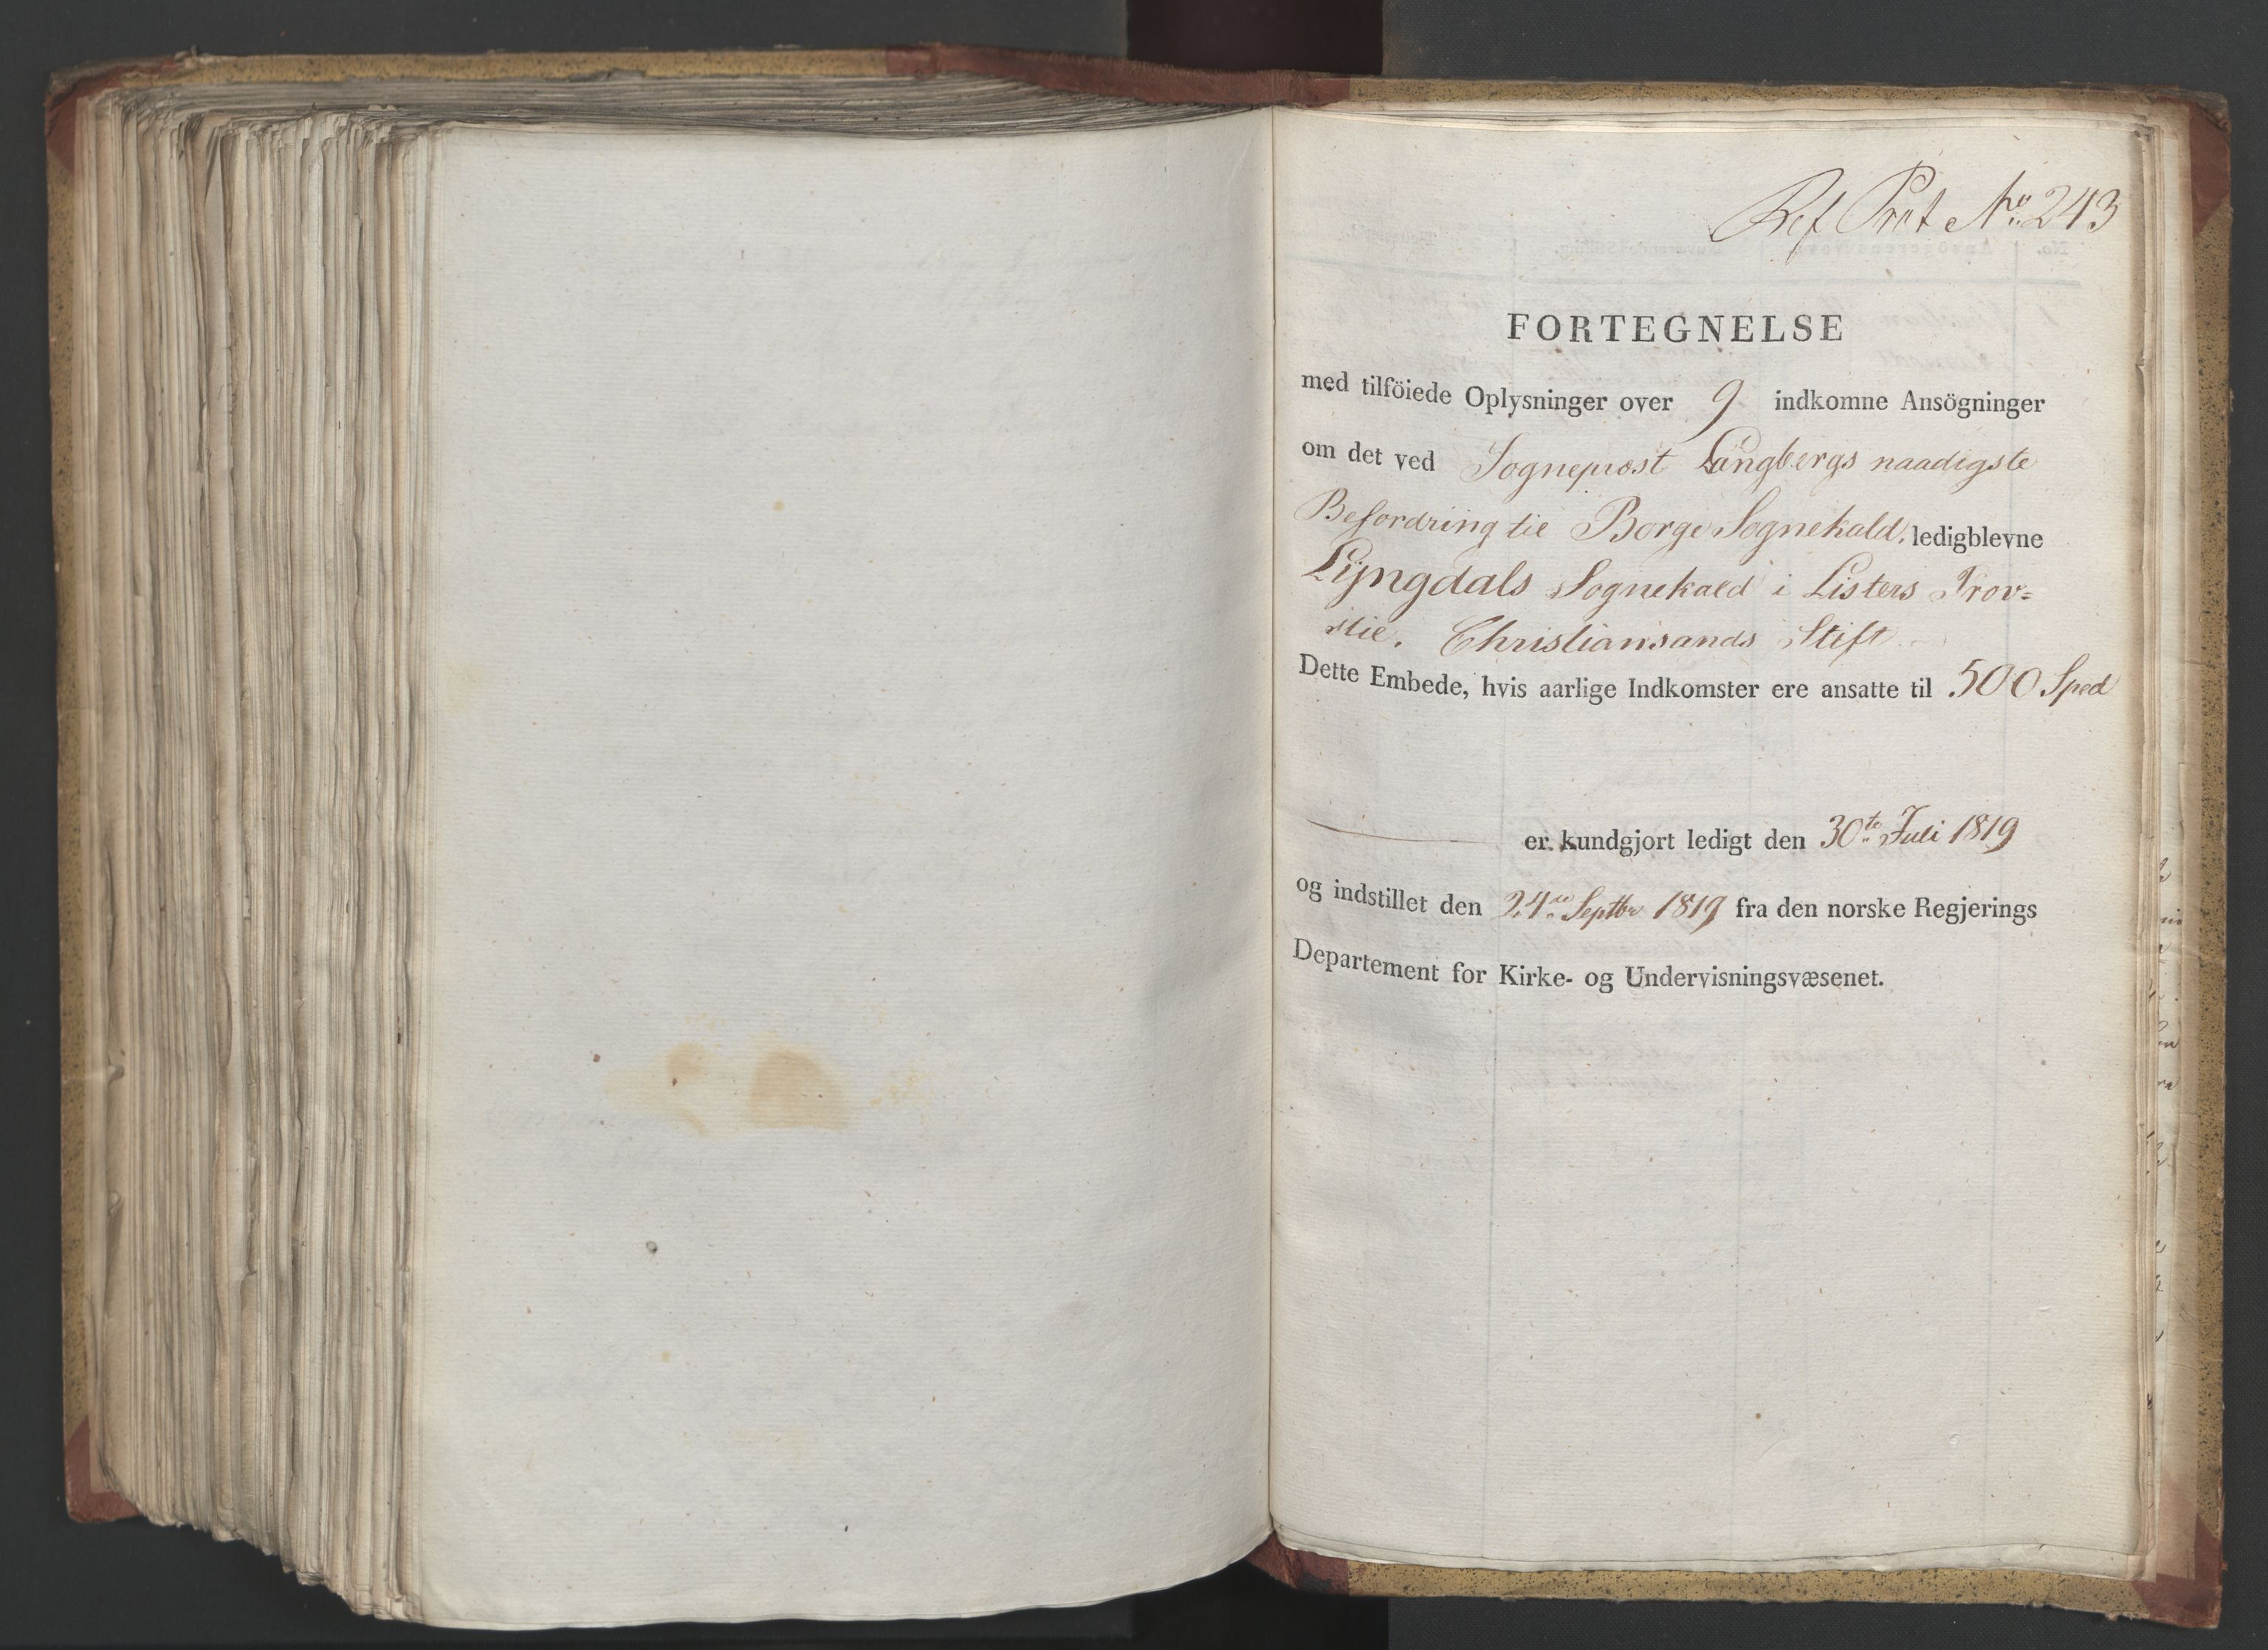 Ref Prot No 243
FORTEGNELSE
med tilföiede Oplysninger over 9 indkomne Ansögninger
om det ved Sogneprost Langbergs naadigste
Befordring til Borge Sognekald, ledigblevne
Lyngdals Sognekald i Listers Prov-
stie, Christiansands Stift
Dette Embede, hvis aarlige Indkomster ere ansatte til 500 Spd
er kundgjort ledigt den 30te Juli 1819
og indstillet den 24de Septbr 1819 fra den norske Regjerings
Departement for Kirke- og Undervisningsvæsenet.